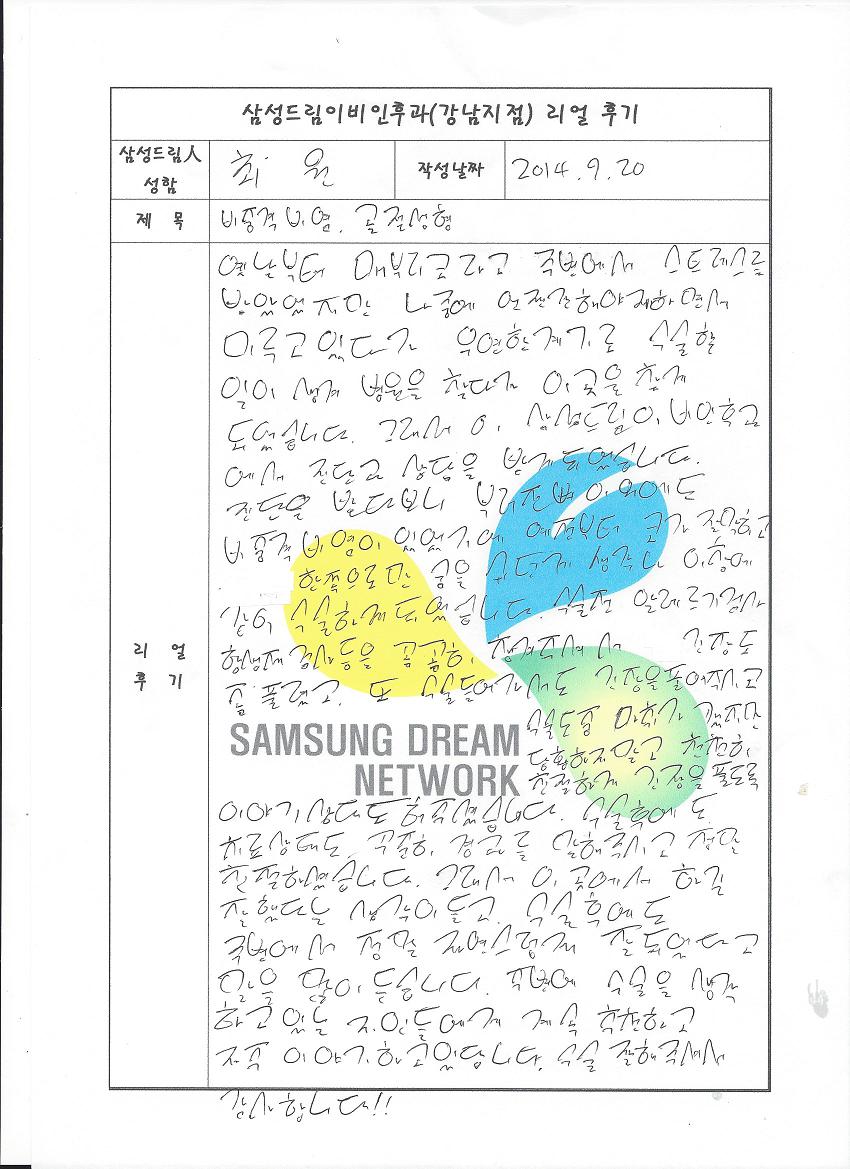 삼성드림이비인후과(강남지점) 리얼 후기
삼성드림人 성함 최 원 작성날짜 2014.9.20
제 목 비중격 비염. 골절성형
리 얼 후 기
옛날부터 매부리코라고 주변에서 스트레스를
받았었지만 나중에 언젠간해야지하면서
미루고 있다가 우연한계기로 수술할
일이 생겨 병원을 찾다가 이곳을 찾게
되었습니다. 그래서 이 삼성드림이비인후과
에서 진단과 상담을 받게되었습니다.
진단을 받다보니 부러진뼈 이외에도
비중격비염이 있었기에 예전부터 코가 막하고
한쪽으로만 숨을 쉬던게 생각나 이참에
같이 수술하게되었습니다. 수술전 알레르기검사
항생제 검사등을 꼼꼼히 챙겨주셔서 긴장도
좀 풀렸고, 또 수술들어가서도 긴장을풀어주시고
수술도중 마취가 깼지만
당황하지말고 천천히
친절하게 긴장을 풀도록
이야기상대도 해주셨습니다. 수술후에도
치료상태도 꾸준히 경과를 말해주시고 정말
친절하셨습니다. 그래서 이 곳에서 하길
잘했다는 생각이들고, 수술후에도
주변에서 정말 자연스럽게 잘되었다고
말을 많이 듣습니다. 주변에 수술을 생각
하고 있는 지인들에게 계속 추천하고
자주 이야기하고있답니다. 수술 잘해주셔서
감사합니다!!
SAMSUNG DREAM
NETWORK